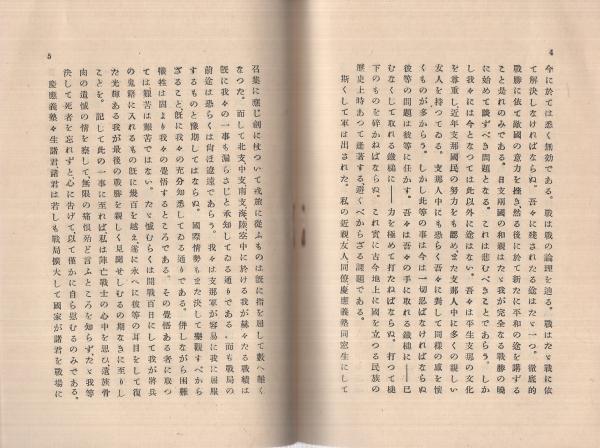 4
今に於ては悉く無効である。戰は戰の論理を辿る。戰はたゞ戰に依
て解決しなければならぬ。吾々に殘されたる途はたゞ一つ。徹底的
戰勝に依て敵國の意力を挫き、然る後に於て新たに平和の途を講ずる
こと是れのみである。日支兩國の和親はたゞ我が完全なる戰勝の曉
に始めて談ずべき問題となる。これは悲むべきことであらう。しか
し我々には今となつては此以外に途はない。吾々は平生支那の文化
を尊重し、近年支那國民の努力をも認め、また支那人中に多くの親しい
友人を持つてゐる。支那人中にも恐らく吾々に對して同樣の感を懷
くものが多からう。しかし此等の事は今は一切思はなければならぬ
彼等の問題は彼等に任かす。吾々は吾々の手に取れる鐵槌に――已
むなくして取れる鐵槌に――力を極めて打たねばならぬ。打つて槌
下のものを挫かねばならぬ。これ實に古今地上に國を立つる民族の
歴史上時あつて逢著する避くべからざる課題である。
斯くして軍は出された。私の近親友人同僚慶應義塾同窓生にして
5
召集に應じ劍に杖ついて戎旅に從ふものは既に指を屈して數へ難く
なつた。而して北支中支南支海陸空中に於ける我が赫々たる戰績は
既に我々の一事も漏らさじと承知してゐる通りである。而も戰局の
前途は恐らくは尚ほ遼遠であらう。我々は支那軍が容易に我に屈服
するものと豫期してはならぬ。國際情勢もまた決して樂觀すべから
ざること、既に我々の充分知悉してゐる通りである。併しながら困難
犧牲は固より我々の覺悟するところである。その覺悟ある者に取つ
ては艱苦は艱苦ではない。たゞ憾むらくは開戰百日にして我が將兵
の鬼籍に入れるもの既に幾百を越え、遂に永へに彼等の耳目をして復
た光輝ある我が最後の戰勝を親しく見聞せしむるの期なきに至りし
ことを。記して此の一事に至れば、私は陣亡戰士の心中を思ひ、遺族骨
肉の遺憾の情を察して、無限の痛恨殆ど言ふところを知らず、たゞ我等
決して死者を忘れずと、心に告げて、以て僅かに自ら慰むるのみである。
慶應義塾々生諸君諸君は若しも戰局擴大して國家が諸君を戰場に